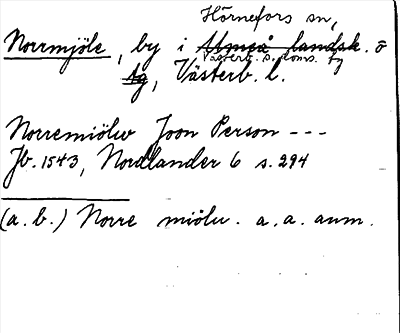 Hörnefors sn,
Norrmjöle, by i Umeå landsk. o
Västerb. s. doms. tg
tg, Västerb. l.
Norremiölw Joon Person ---
Jb. 1543, Nordlander 6 s. 294
(a. b.) Norre miölw. a. a. anm.